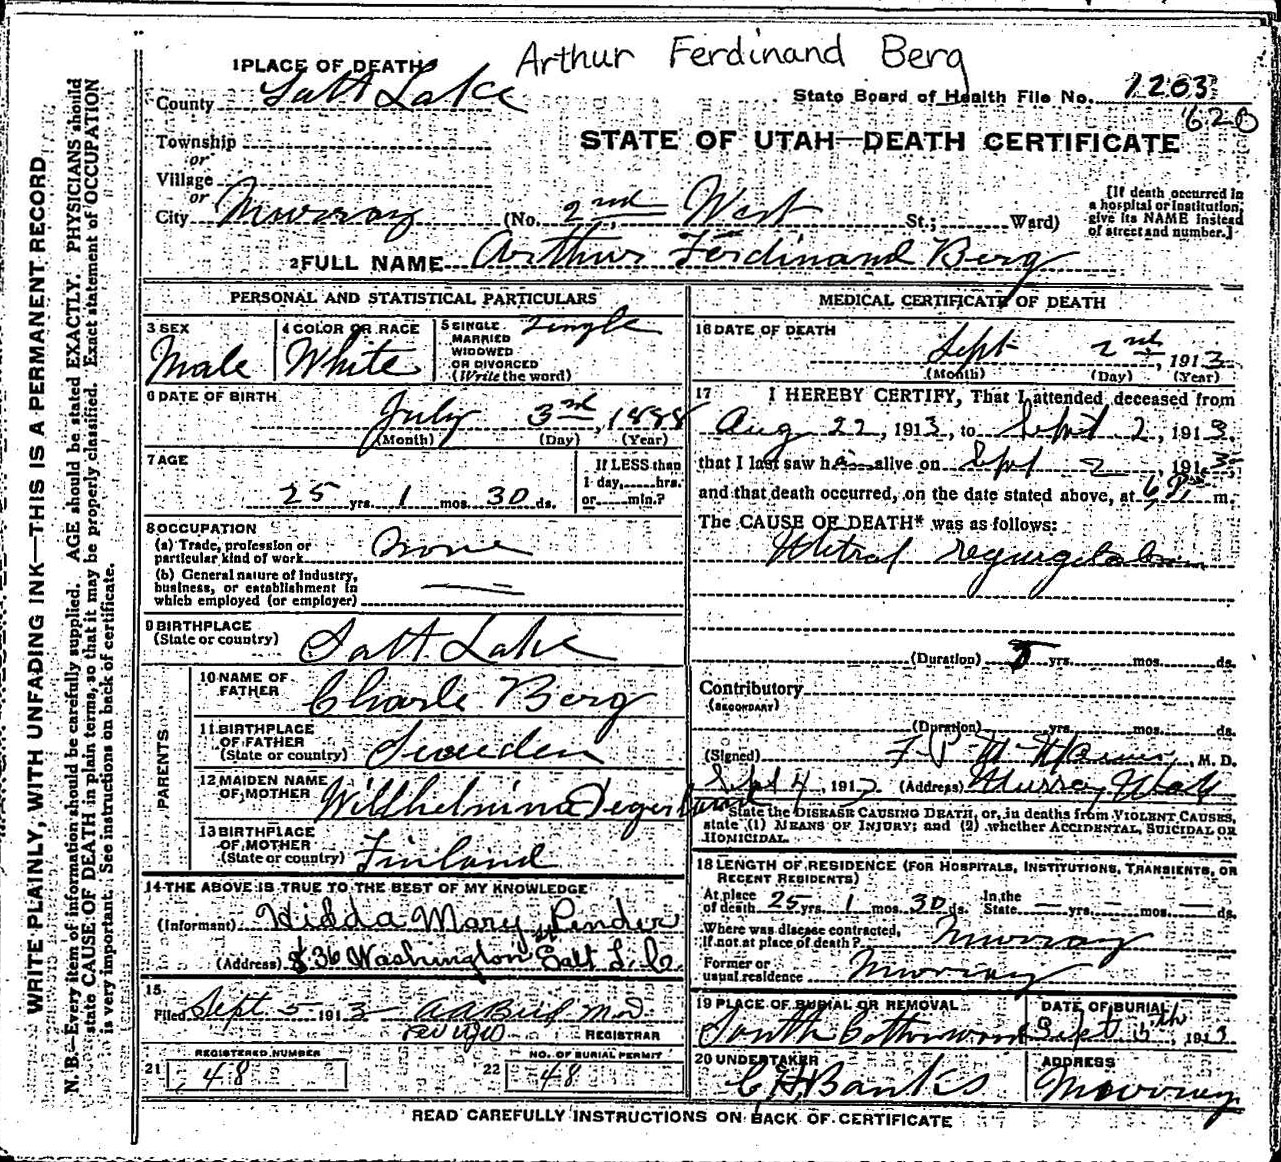 Arthur Ferdinand Berg
1 PLACE OF DEATH
County Salt Lake
State Board of Health File No. 1203
620
Township
STATE OF UTAH—DEATH CERTIFICATE
or
Village
or
City Murray (No. 2nd West St.; Ward)
[If death occurred in
a hospital or institution,
give its NAME instead
of street and number.]
2 FULL NAME Arthur Ferdinand Berg
PERSONAL AND STATISTICAL PARTICULARS
3 SEX
Male
4 COLOR OR RACE
White
5 SINGLE
MARRIED
WIDOWED
OR DIVORCED
(Write the word)
Single
6 DATE OF BIRTH
July 3rd, 1888
(Month) (Day) (Year)
7 AGE
25 yrs. 1 mos. 30 ds.
If LESS than
1 day, hrs.
or min.?
8 OCCUPATION
(a) Trade, profession or
particular kind of work None
(b) General nature of industry,
business, or establishment in
which employed (or employer)
9 BIRTHPLACE
(State or country) Salt Lake
PARENTS
10 NAME OF
FATHER Charle Berg
11 BIRTHPLACE
OF FATHER
(State or country) Sweden
12 MAIDEN NAME
OF MOTHER Willhelmina
13 BIRTHPLACE
OF MOTHER
(State or country) Finland
14 THE ABOVE IS TRUE TO THE BEST OF MY KNOWLEDGE
(Informant) Hidda Mary Pender
(Address) 836 Washington St Salt L. C.
15
Filed Sept 5 1913
REGISTRAR
REGISTERED NUMBER
21 48
NO. OF BURIAL PERMIT
22 48
MEDICAL CERTIFICATE OF DEATH
16 DATE OF DEATH
Sept 2nd, 1913
(Month) (Day) (Year)
17 I HEREBY CERTIFY, That I attended deceased from
Aug 22, 1913, to Sept 2, 1913,
that I last saw him alive on Sept 2, 1913,
and that death occurred, on the date stated above, at 6 P. m.
The CAUSE OF DEATH* was as follows:
Mitral regurgitation
(Duration) 5 yrs. mos. ds.
Contributory
(SECONDARY)
(Duration) yrs. mos. ds.
(Signed) M. D.
Sept 4, 1913 (Address) Murray Utah
*State the DISEASE CAUSING DEATH, or, in deaths from VIOLENT CAUSES,
state (1) MEANS OF INJURY; and (2) whether ACCIDENTAL, SUICIDAL OR
HOMICIDAL.
18 LENGTH OF RESIDENCE (FOR HOSPITALS, INSTITUTIONS, TRANSIENTS, OR
RECENT RESIDENTS)
At place
of death 25 yrs. 1 mos. 30 ds. In the
State yrs. mos. ds.
Where was disease contracted,
if not at place of death? Murray
Former or
usual residence Murray
19 PLACE OF BURIAL OR REMOVAL
South Cottonwood
DATE OF BURIAL
Sept 5th, 1913
20 UNDERTAKER
C H Banks
ADDRESS
Murray
READ CAREFULLY INSTRUCTIONS ON BACK OF CERTIFICATE
WRITE PLAINLY, WITH UNFADING INK—THIS IS A PERMANENT RECORD
N. B.—Every item of information should be carefully supplied. AGE should be stated EXACTLY. PHYSICIANS should
state CAUSE OF DEATH in plain terms, so that it may be properly classified. Exact statement of OCCUPATION
is very important. See instructions on back of certificate.